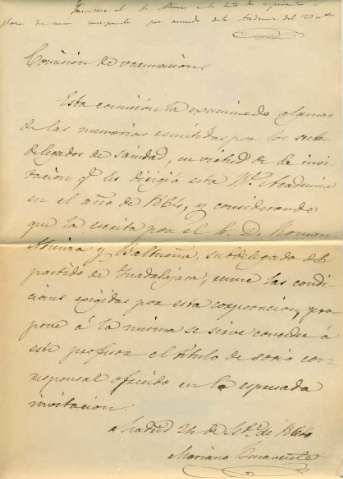 Comision de vacunacion.
Esta comision ha examinado algunas
de las memorias remitidas por los sub
delegados de sanidad, en virtud de la invi
tacion qe les dirijió esta Rl. Academia
en el año de 1864, y considerando
que la escrita por el Sr. D. Roman
Atienza y Baltueña, subdelegado del
partido de Guadalajara, reune las condi
ciones ecsijidas por esta corporacion, pro
pone á la misma se sirva conceder á
este profesor el título de socio cor
responsal ofrecido en la espresada
invitacion.
Madrid 24 de de 1864
Mariano Benavente